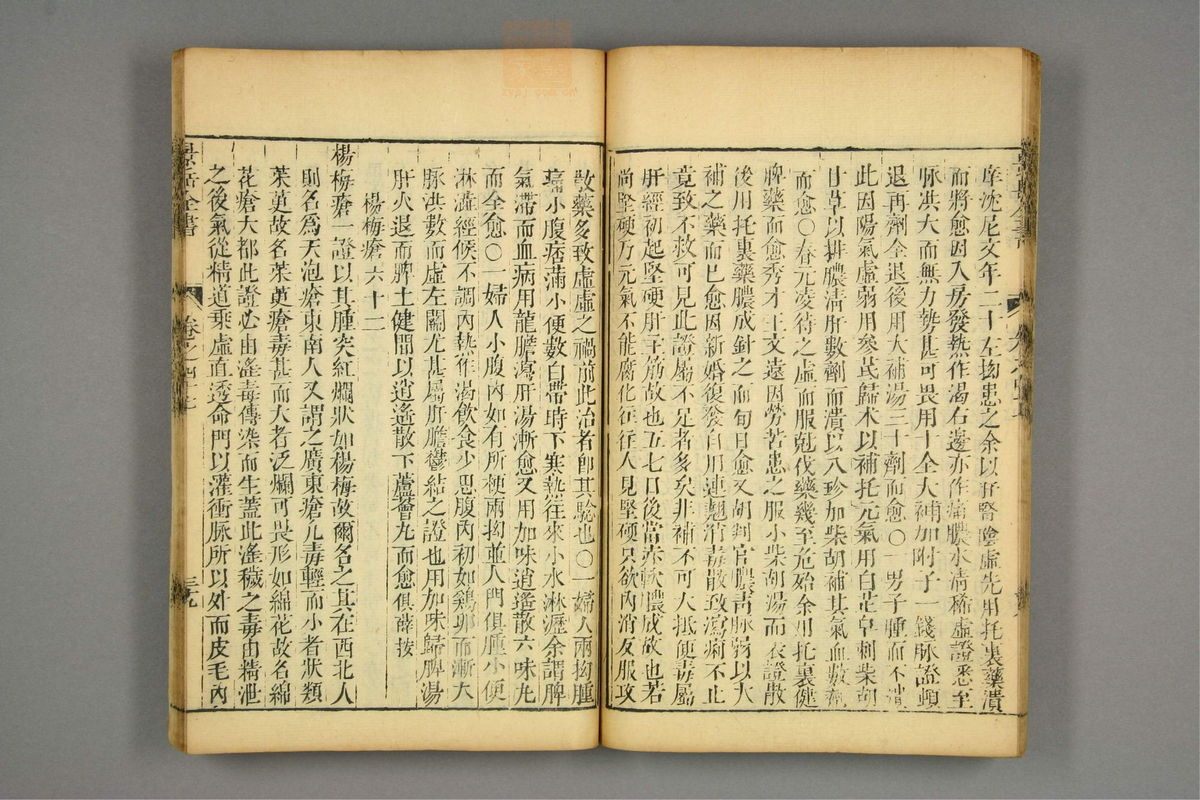 庠沈尼文年二十左拗患之余以肝腎陰虛先用托裏藥潰
而將愈因入房發熱作渴右邊亦作痛膿水清稀虛證悉至
脉洪大而無力勢甚可畏用十全大補加附子一錢脉證頓
退再劑全退後用大補湯三十劑而愈〇一男子腫而不潰
此因陽氣虛弱用參芪歸术以補托元氣用白芷皁刺柴胡
甘草以排膿清肝數劑而潰以八珍加柴胡補其氣血數劑
而愈〇春元凌待之虛而服尅伐藥幾至危殆余用托裏健
脾藥而愈秀才王文遠因勞苦患之服小柴胡湯而表證散
後用托裏藥膿成針之而旬日愈又胡判官膿清脉弱以大
補之藥而已愈因新婚復發自用連翹消毒散致瀉痢不止
竟致不救可見此證屬不足者多矣非補不可大抵便毒屬
肝經初起堅硬肝主筋故也五七日後當赤軟膿成故也若
尚堅硬乃元氣不能腐化往往人見堅硬只欲內消反服攻
散藥多致虛虛之禍前此治者卽其騐也〇一婦人兩拗腫
痛小腹痞滿小便數白帶時下寒熱往來小水淋瀝余謂脾
氣滯而血病用龍膽瀉肝湯漸愈又用加味逍遙散六味丸
而全愈〇一婦人小腹內如有所梗兩拗並入門俱腫小便
淋澁經候不調內熱作渴飲食少思腹內初如鷄卵而漸大
脉洪數而虛左關尤甚屬肝膽鬱結之證也用加味歸脾湯
肝火退而脾土健間以逍遙散下蘆薈丸而愈俱薛按
楊梅瘡六十二
楊梅瘡一證以其腫突紅爛狀如楊梅故爾名之其在西北人
則名爲天泡瘡東南人又謂之廣東瘡凡毒輕而小者狀類
茱萸故名茱萸瘡毒甚而大者泛爛可畏形如綿花故名綿
花瘡大都此證必由淫毒傳染而生蓋此淫穢之毒由精泄
之後氣從精道乘虛直透命門以灌衝脉所以外而皮毛內
景岳全書
卷之四十七
三九